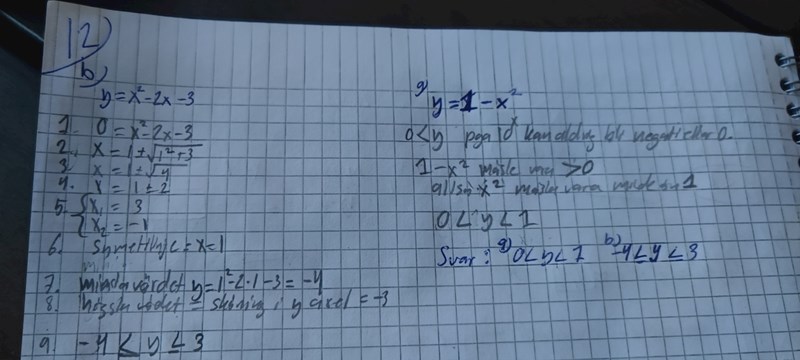 12)
b)
y = x² - 2x - 3
1. 0 = x² - 2x - 3
2. x = 1 ± √(1² + 3)
3. x = 1 ± √4
4. x = 1 ± 2
5. { x₁ = 3
x₂ = -1
6. Symetrilinje = x = 1
7. minsta värdet y = 1² - 2·1 - 3 = -4
8. högsta värdet = skärning i y axel = -3
9. -4 ≤ y ≤ 3
a)
y = 1 - x²
0 < y pga 10ˣ kan aldrig bli negativ eller 0.
1 - x² måste vara > 0
alltså x² måste vara mindre än 1
0 < y < 1
Svar: a) 0 < y < 1 b) -4 ≤ y ≤ 3